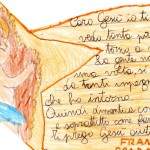 Caro Gesù io ti
vedo tanta pa
torno a
La gente no
una volta si
da tanti impegn
che ha intorno
Quindi dimentica co
e soprattutto con
ti prego Gesù aiut
FRAN